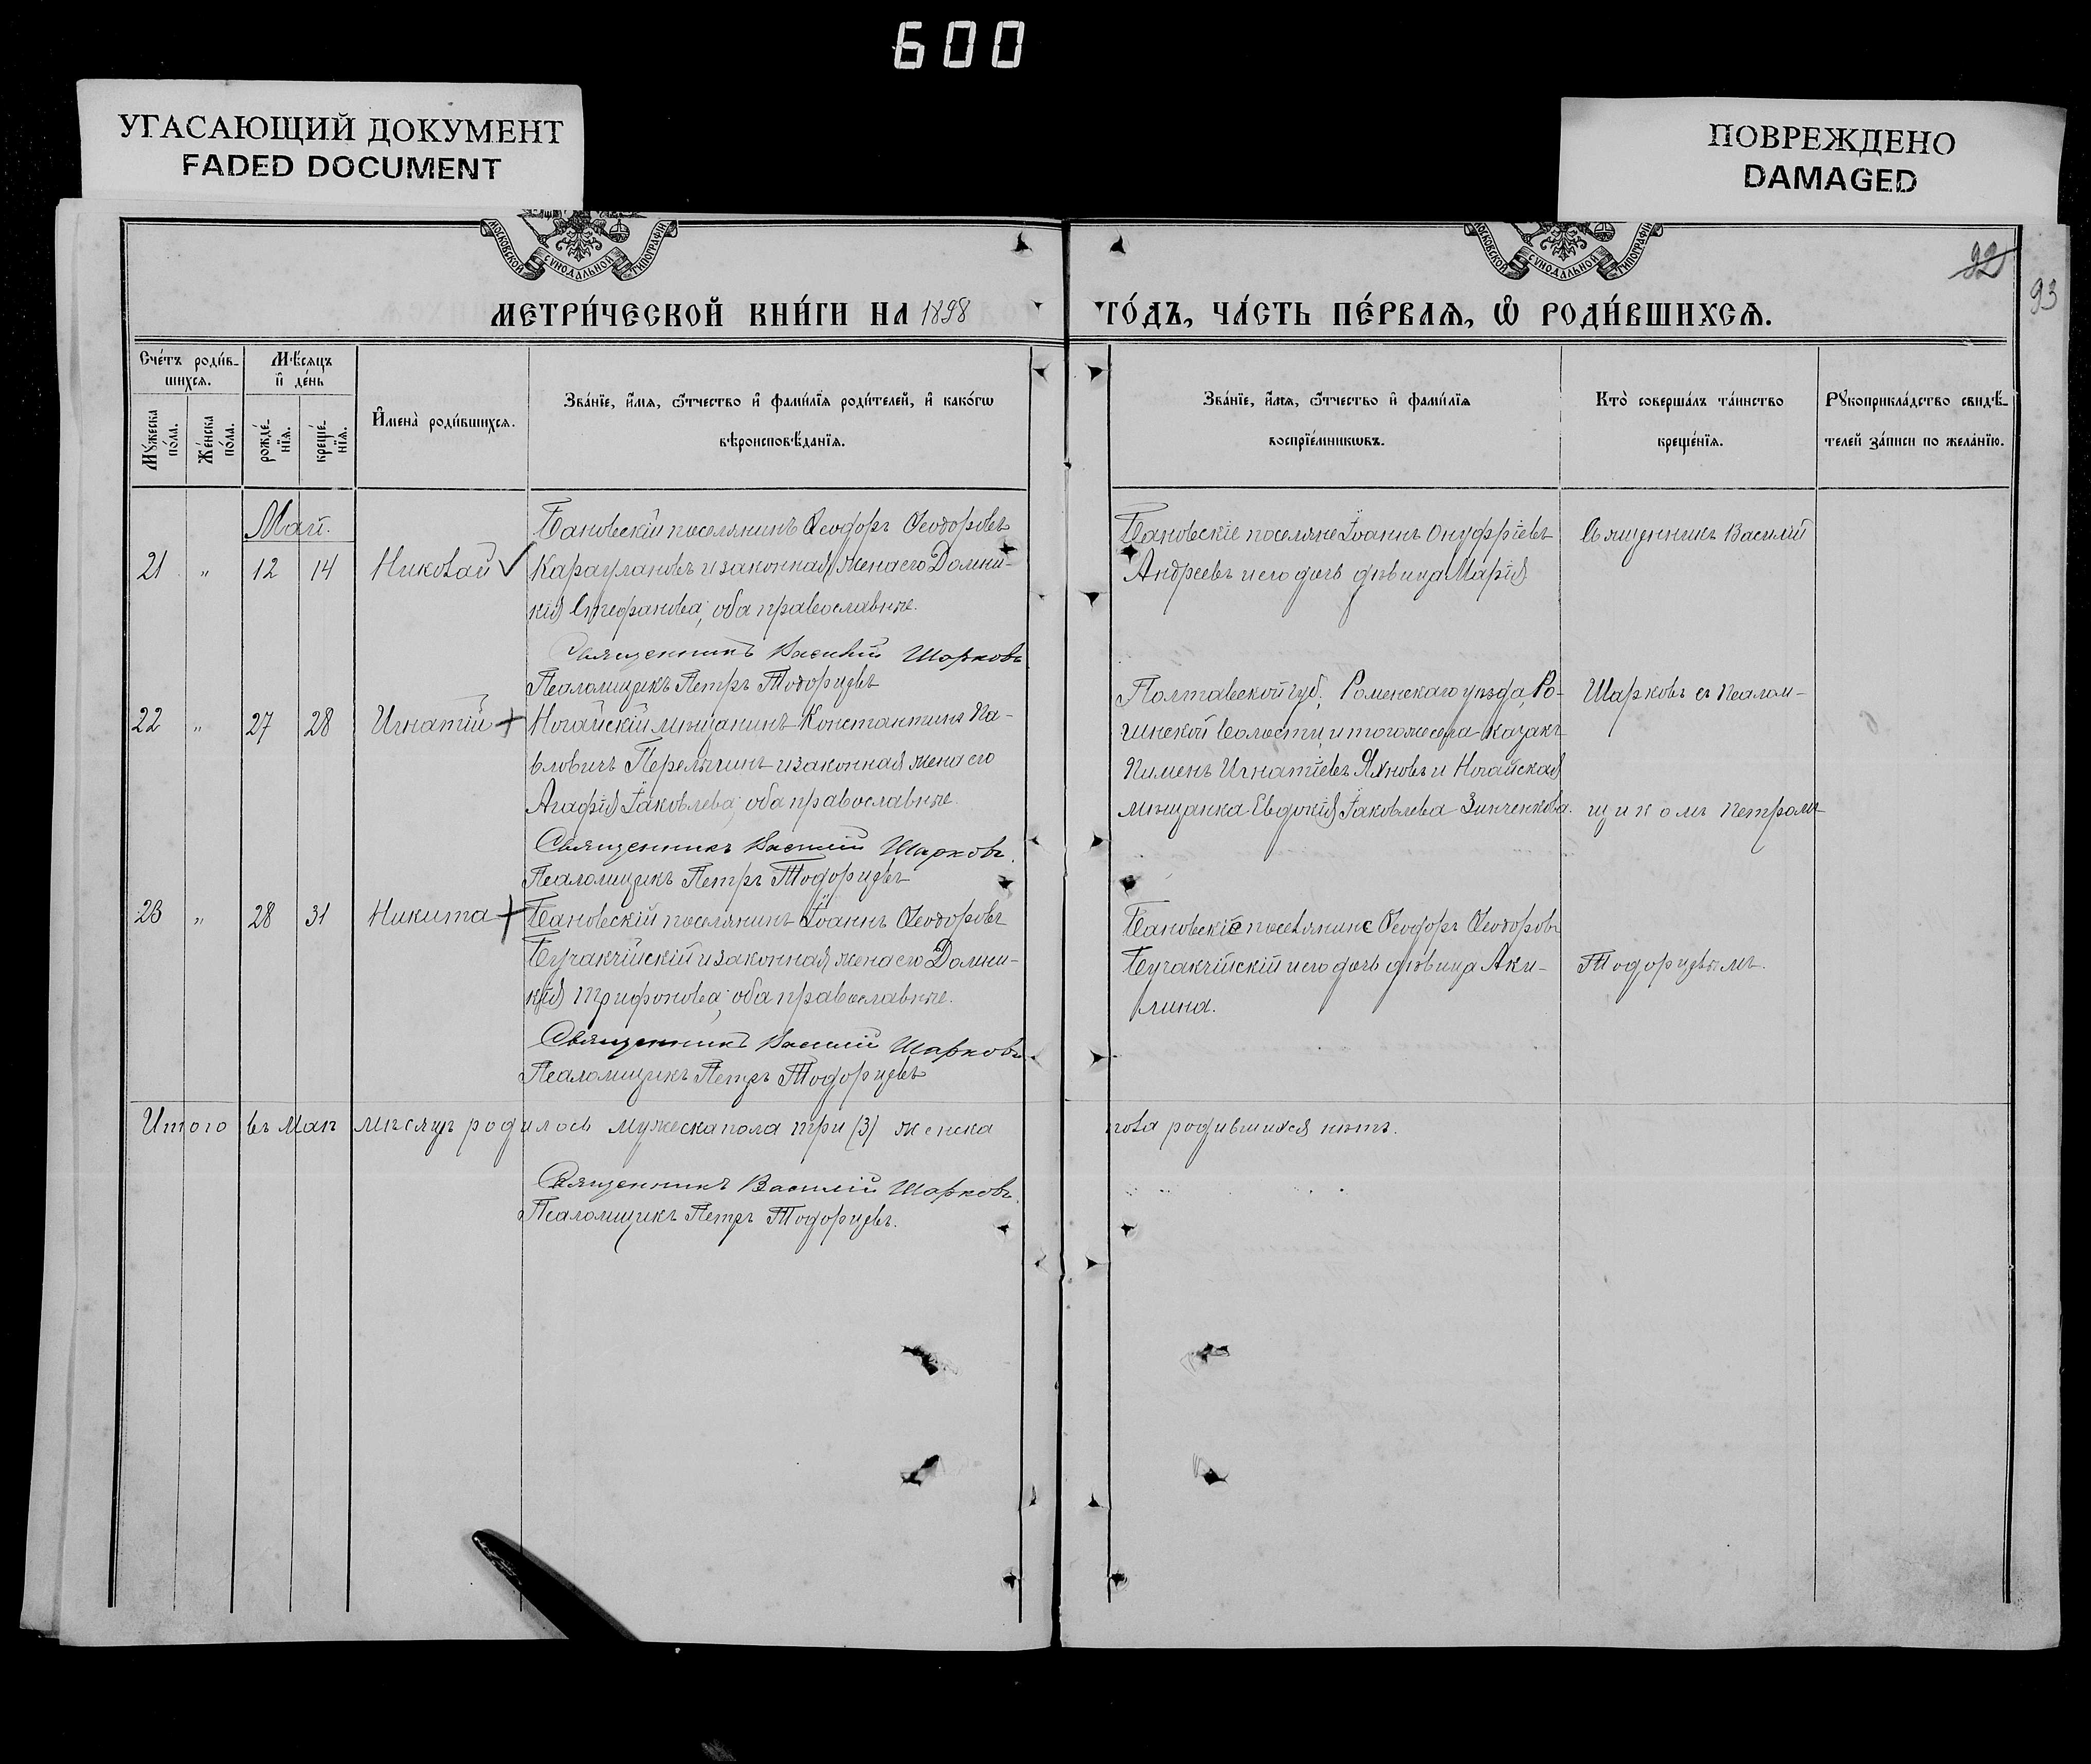 600
УГАСАЮЩИЙ ДОКУМЕНТ
FADED DOCUMENT
ПОВРЕЖДЕНО
DAMAGED
МОСКОВСКОЙ СѴНОДАЛЬНОЙ ТИПОГРАФІИ
МОСКОВСКОЙ СѴНОДАЛЬНОЙ ТИПОГРАФІИ
92
93
МЕТРИ́ЧЕСКОЙ КНИ́ГИ НА 1898
ГО́ДЪ, ЧА́СТЬ ПЕ́РВАѦ, Ѡ҆ РОДИ́ВШИХСѦ.
Сче́тъ роди́в-
шихсѧ.
Мꙋжеска по́ла.
Же́нска по́ла.
Мѣ́сѧцъ
и҆ де́нь
рожде́-
нїѧ.
креще́-
нїѧ.
И҆мена̀ роди́вшихсѧ.
Зва́нїе, и҆́мѧ, ѻ҆́тчество и҆ фами́лїѧ роди́телей, и҆ како́гѡ
вѣроисповѣ́данїѧ.
Зва́нїе, и҆́мѧ, ѻ҆́тчество и҆ фами́лїѧ
воспрїе́мникѡвъ.
Кто̀ соверша́лъ та́инство
креще́нїѧ.
Рꙋкоприкла́дство свидѣ́-
телей за́писи по жела́нїю.
Май.
21 " 12 14 Николай
Бановскій поселянинъ Ѳеодоръ Ѳеодоровъ
Карауловъ и законная жена его Домни-
кія Стефанова, оба православные.
Священникъ Василій Шарковъ
Псаломщикъ Петръ Тодорцевъ
Бановскіе поселяне Іоаннъ Онуфріевъ
Андреевъ и его дочь дѣвица Марія
Священникъ Василій
22 " 27 28 Игнатій
Ногайскій мѣщанинъ Константинъ Па-
вловичъ Перелыгинъ и законная жена его
Агафія Іаковлева, оба православные.
Священникъ Василій Шарковъ.
Псаломщикъ Петръ Тодорцевъ
Полтавской губ., Роменскаго уѣзда, Ро-
шнской волости и того же села казакъ
Пименъ Игнатіевъ Яхновъ и Ногайская
мѣщанка Евдокія Іаковлева Зинченкова.
Шарковъ съ псалом-
щикомъ Петромъ
23 " 28 31 Никита
Бановскій поселянинъ Іоаннъ Ѳеодоровъ
Бучакчійскій и законная жена его Домни-
кія Трифонова, оба православные.
Священникъ Василій Шарковъ
Псаломщикъ Петръ Тодорцевъ
Бановскіе поселянине Ѳеодоръ Ѳеодоровъ
Бучакчійскій и его дочь дѣвица Аки-
лина.
Тодорцевымъ.
Итого въ маѣ мѣсяцѣ родилось мужеска пола три (3) женска
пола родившихся нѣтъ.
Священникъ Василій Шарковъ.
Псаломщикъ Петръ Тодорцевъ.